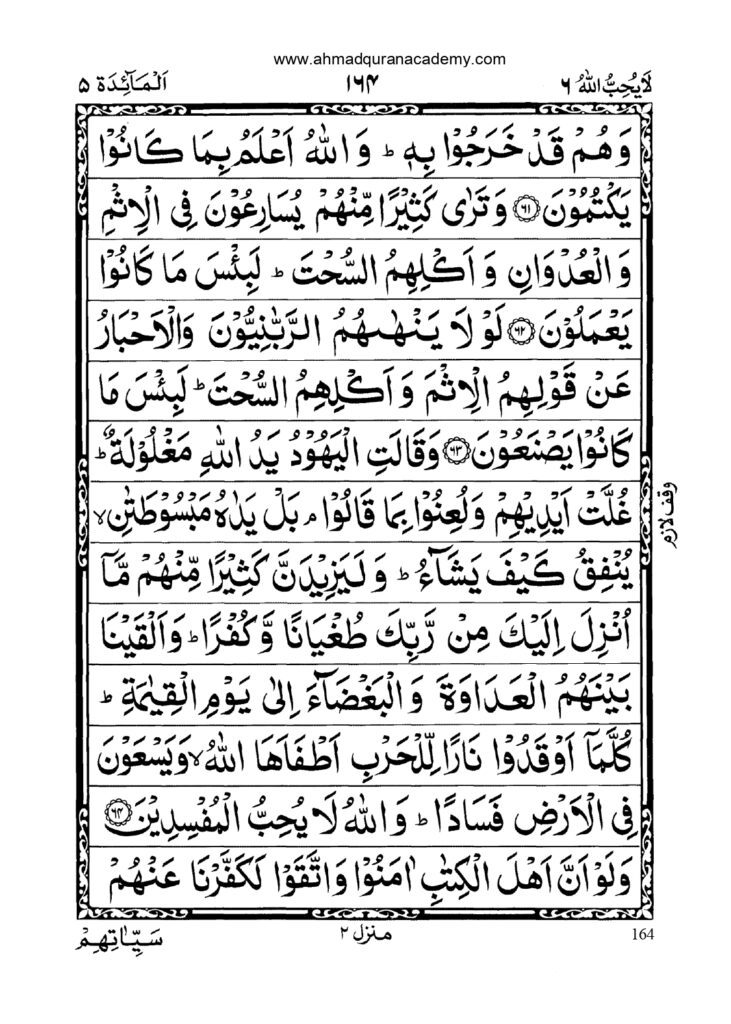 www.ahmadquranacademy.com
لَا يُحِبُّ اللّٰهُ ۶ ۱۶۴ اَلْمَآئِدَة ۵
وَهُمْ قَدْ خَرَجُوْا بِهٖ ؕ وَ اللّٰهُ اَعْلَمُ بِمَا كَانُوْا
يَكْتُمُوْنَ ﴿۶۱﴾ وَ تَرٰى كَثِيْرًا مِّنْهُمْ يُسَارِعُوْنَ فِى الْاِثْمِ
وَ الْعُدْوَانِ وَ اَكْلِهِمُ السُّحْتَ ؕ لَبِئْسَ مَا كَانُوْا
يَعْمَلُوْنَ ﴿۶۲﴾ لَوْ لَا يَنْهٰىهُمُ الرَّبّٰنِيُّوْنَ وَالْاَحْبَارُ
عَنْ قَوْلِهِمُ الْاِثْمَ وَ اَكْلِهِمُ السُّحْتَ ؕ لَبِئْسَ مَا
كَانُوْا يَصْنَعُوْنَ ﴿۶۳﴾ وَقَالَتِ الْيَهُوْدُ يَدُ اللّٰهِ مَغْلُوْلَةٌ ؕ
غُلَّتْ اَيْدِيْهِمْ وَلُعِنُوْا بِمَا قَالُوْا ۘ بَلْ يَدٰهُ مَبْسُوْطَتٰنِ ۙ
وقف لازم
يُنْفِقُ كَيْفَ يَشَآءُ ؕ وَ لَيَزِيْدَنَّ كَثِيْرًا مِّنْهُمْ مَّاۤ
اُنْزِلَ اِلَيْكَ مِنْ رَّبِّكَ طُغْيَانًا وَّ كُفْرًا ؕ وَ اَلْقَيْنَا
بَيْنَهُمُ الْعَدَاوَةَ وَ الْبَغْضَآءَ اِلٰى يَوْمِ الْقِيٰمَةِ ؕ
كُلَّمَاۤ اَوْقَدُوْا نَارًا لِّلْحَرْبِ اَطْفَاَهَا اللّٰهُ ۙ وَيَسْعَوْنَ
فِى الْاَرْضِ فَسَادًا ؕ وَ اللّٰهُ لَا يُحِبُّ الْمُفْسِدِيْنَ ﴿۶۴﴾
وَلَوْ اَنَّ اَهْلَ الْكِتٰبِ اٰمَنُوْا وَاتَّقَوْا لَكَفَّرْنَا عَنْهُمْ
164 منزل ۲ سَيِّاٰتِهِمْ